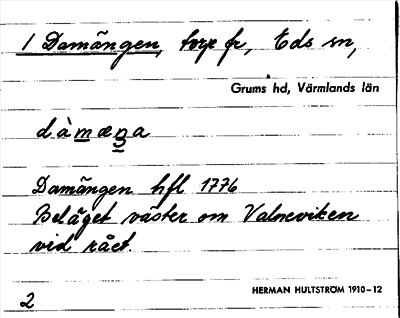 1 Damängen, torp fr, Eds sn,
Grums hd, Värmlands län
dàmæŋa
Damängen hfl 1776
Beläget väster om Valneviken
vid rået.
HERMAN HULTSTRÖM 1910–12
2